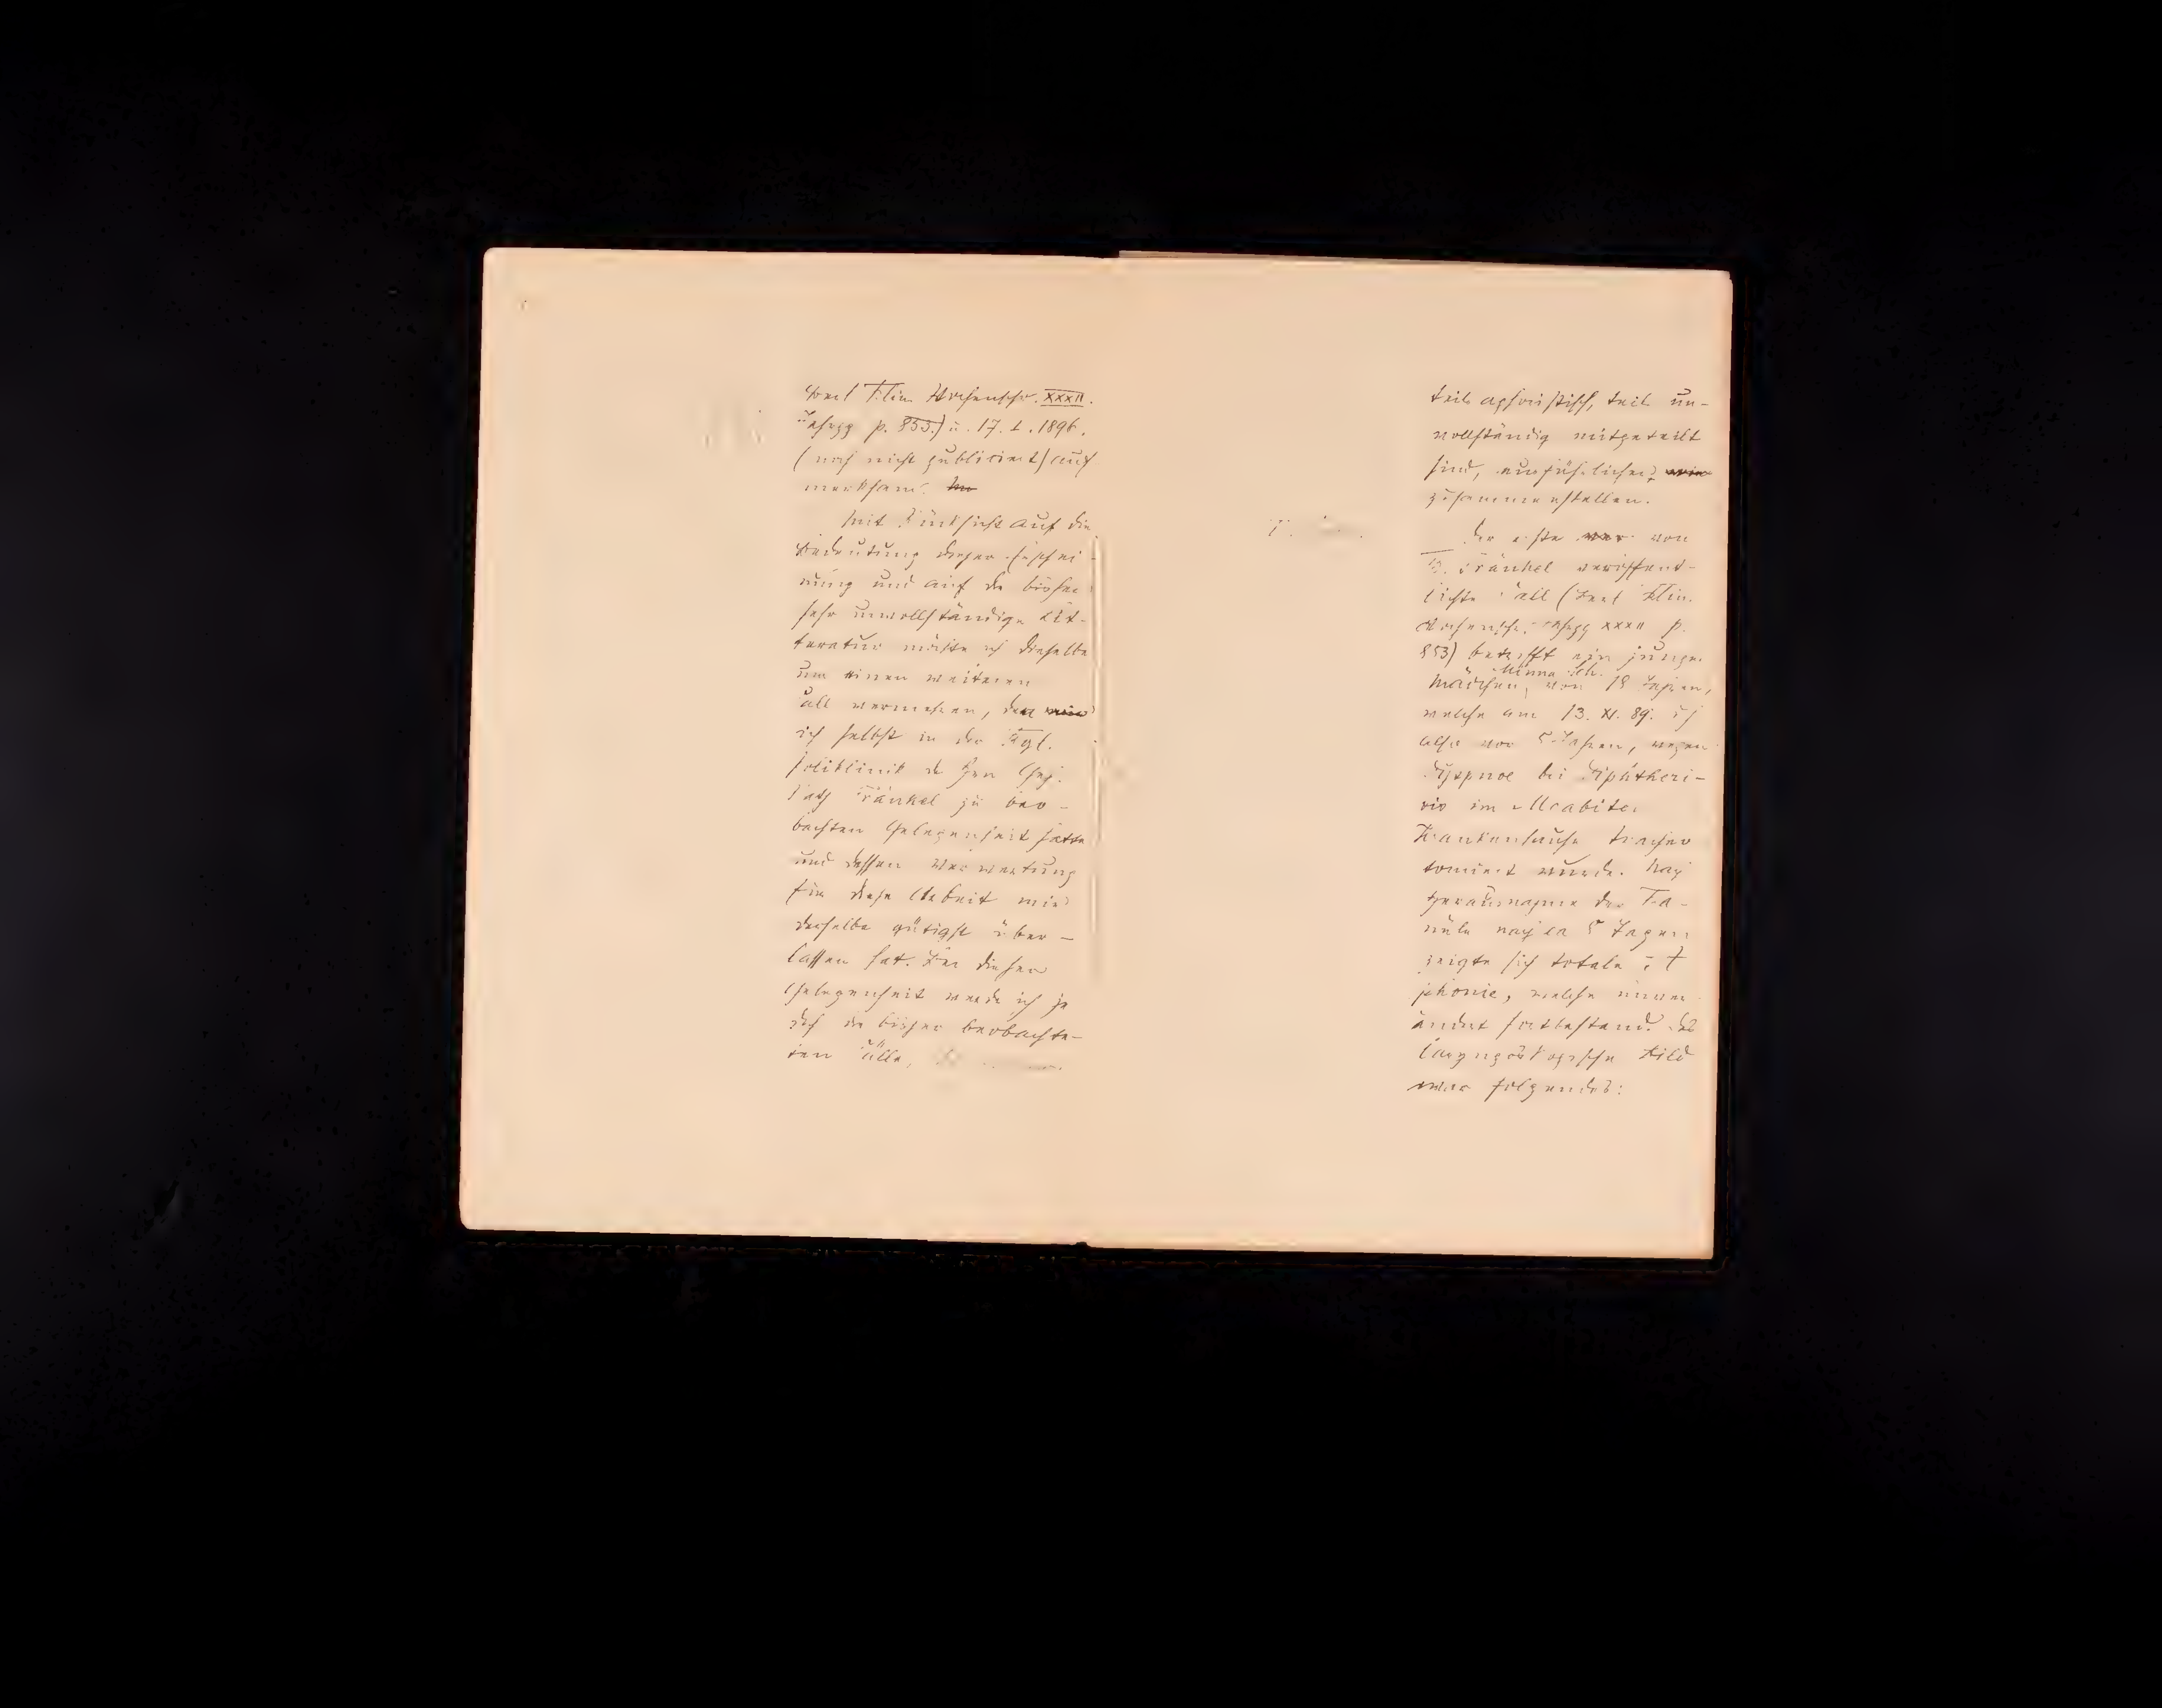 Berl Klin Wochenschr. XXXII.
Jahrgg p. 853.) u. 17. I. 1896.
(noch nicht publiciert) auf
merksam.
Mit Rücksicht auf die
Bedeutung dieser Erschei-
nung und auf die bisher
sehr unvollständige Lit-
teratur möchte ich dieselbe
um einen weiteren
Fall vermehren, den
ich selbst in der Kgl.
Poliklinik des Herrn Geh.
Rath Fränkel zu beo-
bachten Gelegenheit hatte
und dessen Verwertung
für diese Arbeit mir
derselbe gütigst über-
lassen hat. Bei dieser
Gelegenheit werde ich je
doch die bisher beobachte-
ten Fälle,
teils aphoristisch, teils un-
vollständig mitgeteilt
sind, ausführlicher
zusammenstellen.
Der erste von
B. Fränkel veröffent-
lichte Fall (Berl Klin.
Wochenschr. Jahrgg XXXII p.
853) betrifft ein junges
Minna Sch.
Mädchen, von 18 Jahren,
welche am 13. XI. 89.
also vor 5 Jahren, wegen
Dyspnoe bei Diphtheri-
tis im Moabiter
Krankenhause tracheo
tomiert wurde. Nach
Herausnahme der Ka-
nüle nach ca 5 Tagen
zeigte sich totale A
phonie, welche unver
ändert fortbestand. Das
laryngoskopische Bild
war folgendes: